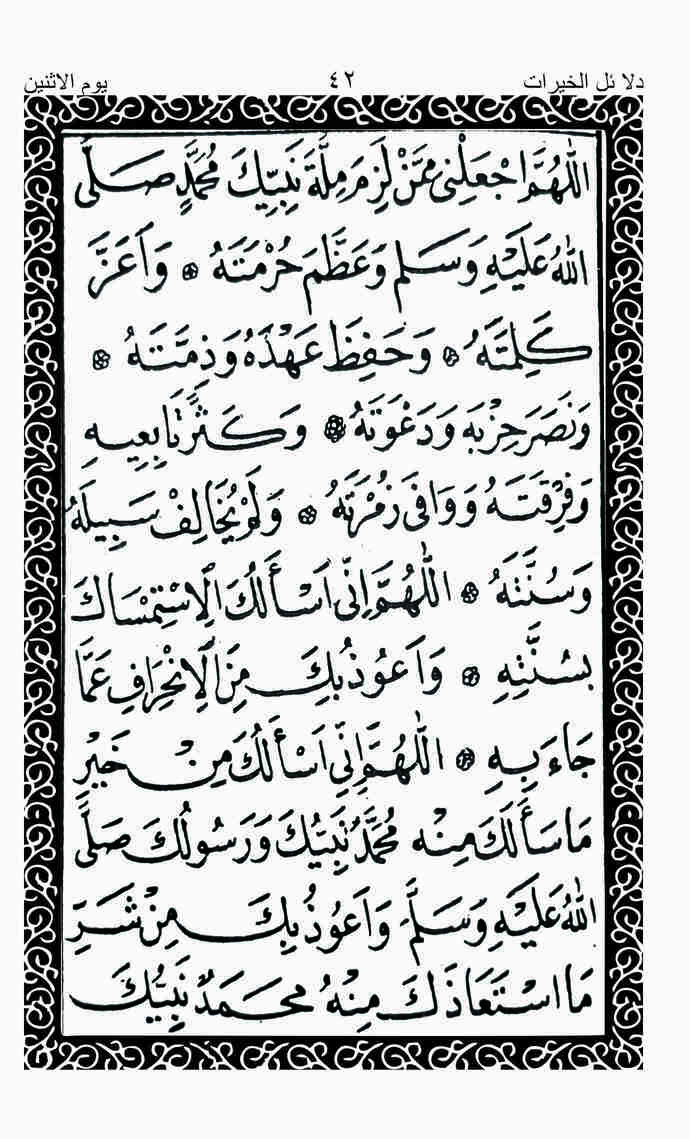 دلائل الخيرات ٤٢ يوم الاثنين
اَللّٰهُمَّ اجْعَلْنِى مِمَّنْ لَزِمَ مِلَّةَ نَبِيِّكَ مُحَمَّدٍ صَلَّى
اللهُ عَلَيْهِ وَسَلَّم وَعَظَّمَ حُرْمَتَهُ ۞ وَاَعَزَّ
كَلِمَتَهُ ۞ وَحَفِظَ عَهْدَهُ وَذِمَّتَهُ ۞
وَنَصَرَ حِزْبَهُ وَدَعْوَتَهُ ۞ وَكَثَّرَ تَابِعِيهِ
وَفِرْقَتَهُ وَوَافَى زُمْرَتَهُ ۞ وَلَمْ يُخَالِفْ سَبِيلَهُ
وَسُنَّتَهُ ۞ اَللّٰهُمَّ اِنِّى اَسْأَلُكَ الْاِسْتِمْسَاكَ
بِسُنَّتِهِ ۞ وَاَعُوذُ بِكَ مِنَ الْاِنْحِرَافِ عَمَّا
جَاءَ بِهِ ۞ اَللّٰهُمَّ اِنِّى اَسْأَلُكَ مِنْ خَيْرِ
مَا سَأَلَكَ مِنْهُ مُحَمَّدٌ نَبِيُّكَ وَرَسُولُكَ صَلَّى
اللهُ عَلَيْهِ وَسَلَّمَ وَاَعُوذُ بِكَ مِنْ شَرِّ
مَا اسْتَعَاذَكَ مِنْهُ مُحَمَّدٌ نَبِيُّكَ